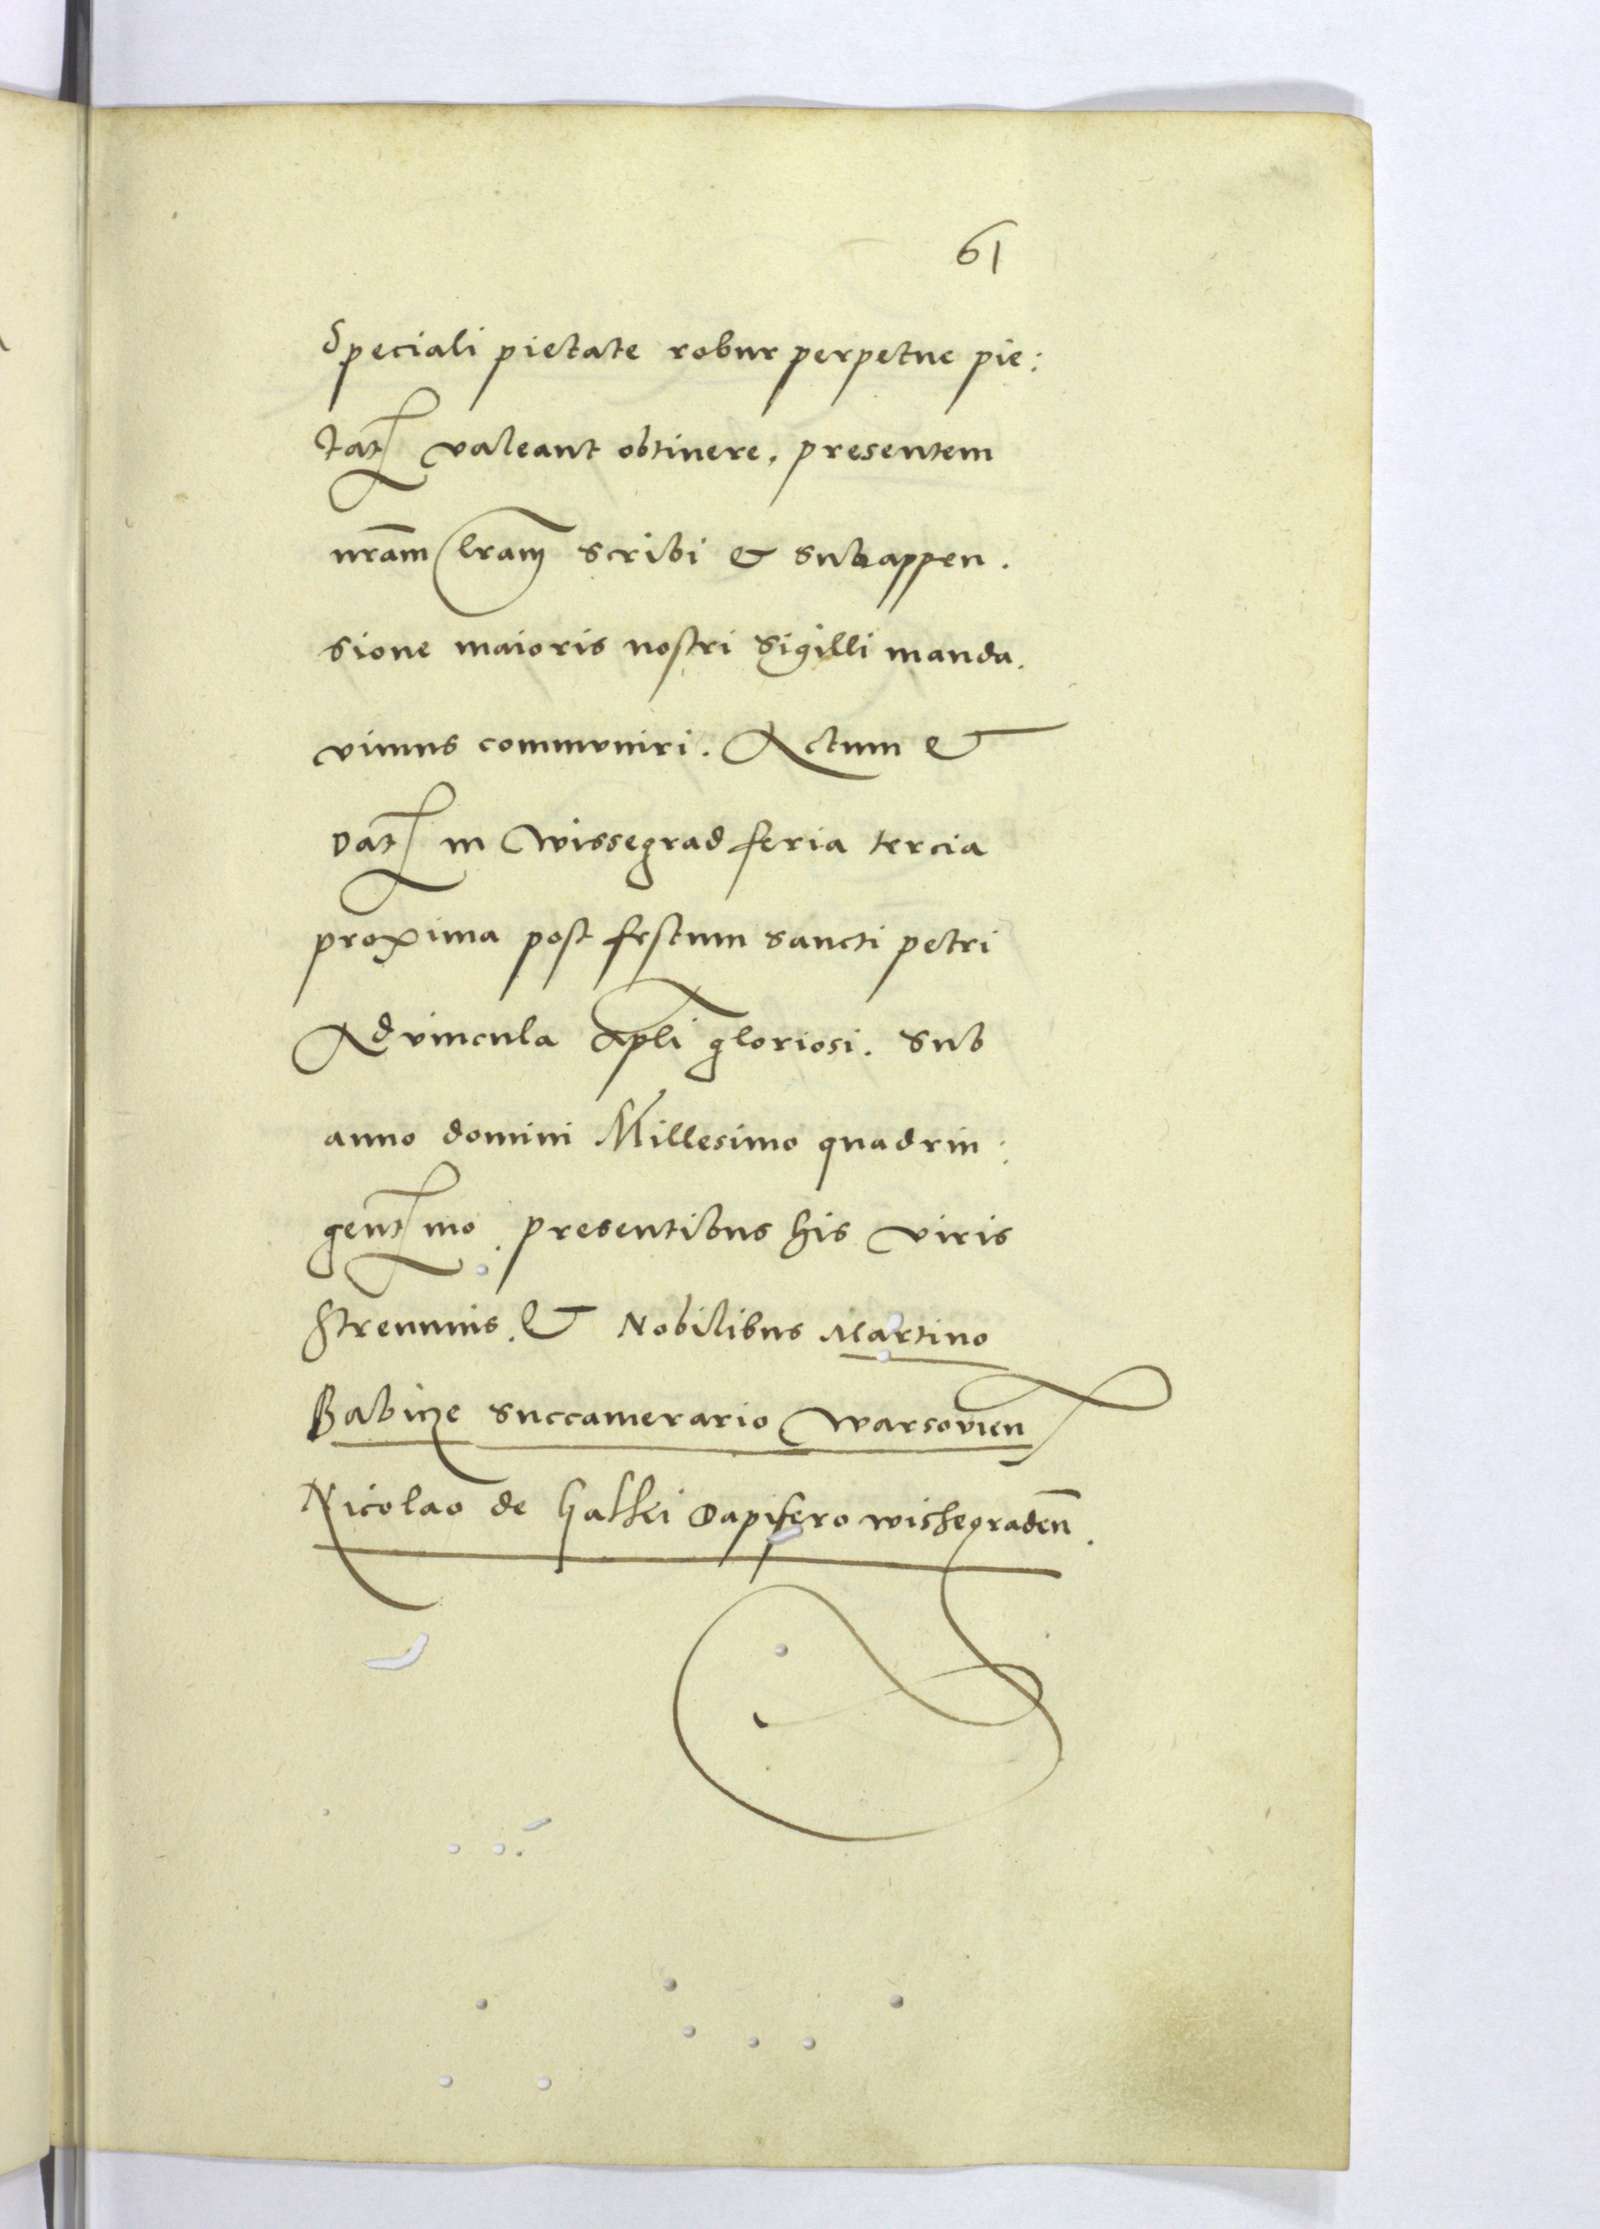 61
Speciali pietate robur perpetue pie:
tat⁊ valeant obtinere. presentem
nr̄am lram̄ scribi & sub appen.
sione maioris nostri sigilli manda.
vimus communiri. Actum &
Dat⁊ in Wissegrad feria tercia
proxima post festum sancti petri
Advincula apl̄i gloriosi. Sub
anno domini Millesimo quadrin:
gent⁊mo. presentibus his viris
strenuuis. & Nobilibus Martino
Babicze succamerario Warsovien
Nicolao de Galki Dapifero wishegraden̄.